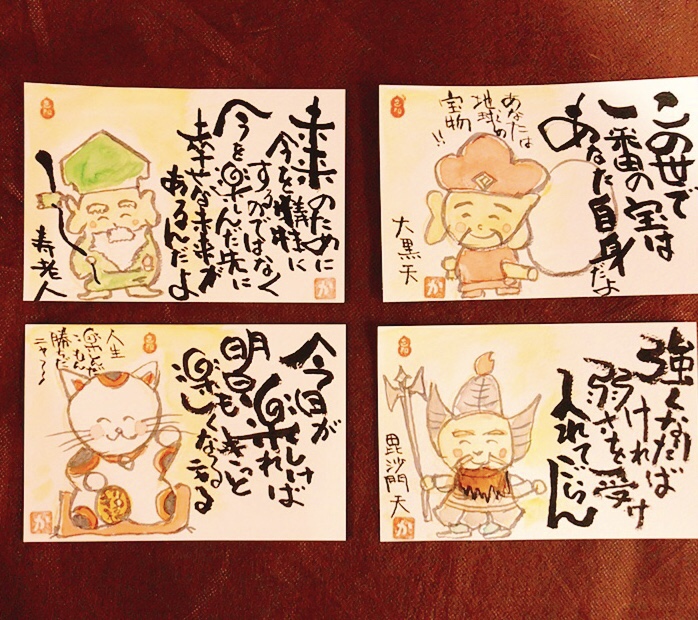 未来のために
今を犠牲に
するのではなく
今を楽んだ先に
幸せな未来が
あるんだよ
寿老人
か
この世で
一番の宝は
あなた自身だよ
あなたは
地球の
宝物!!
大黒天
か
今日が
楽しければ
明日もきっと
楽しくなる
人生
勝ちだ
ニャ〜
か
強くなりたければ
弱さを受け
入れてごらん
毘沙門天
か